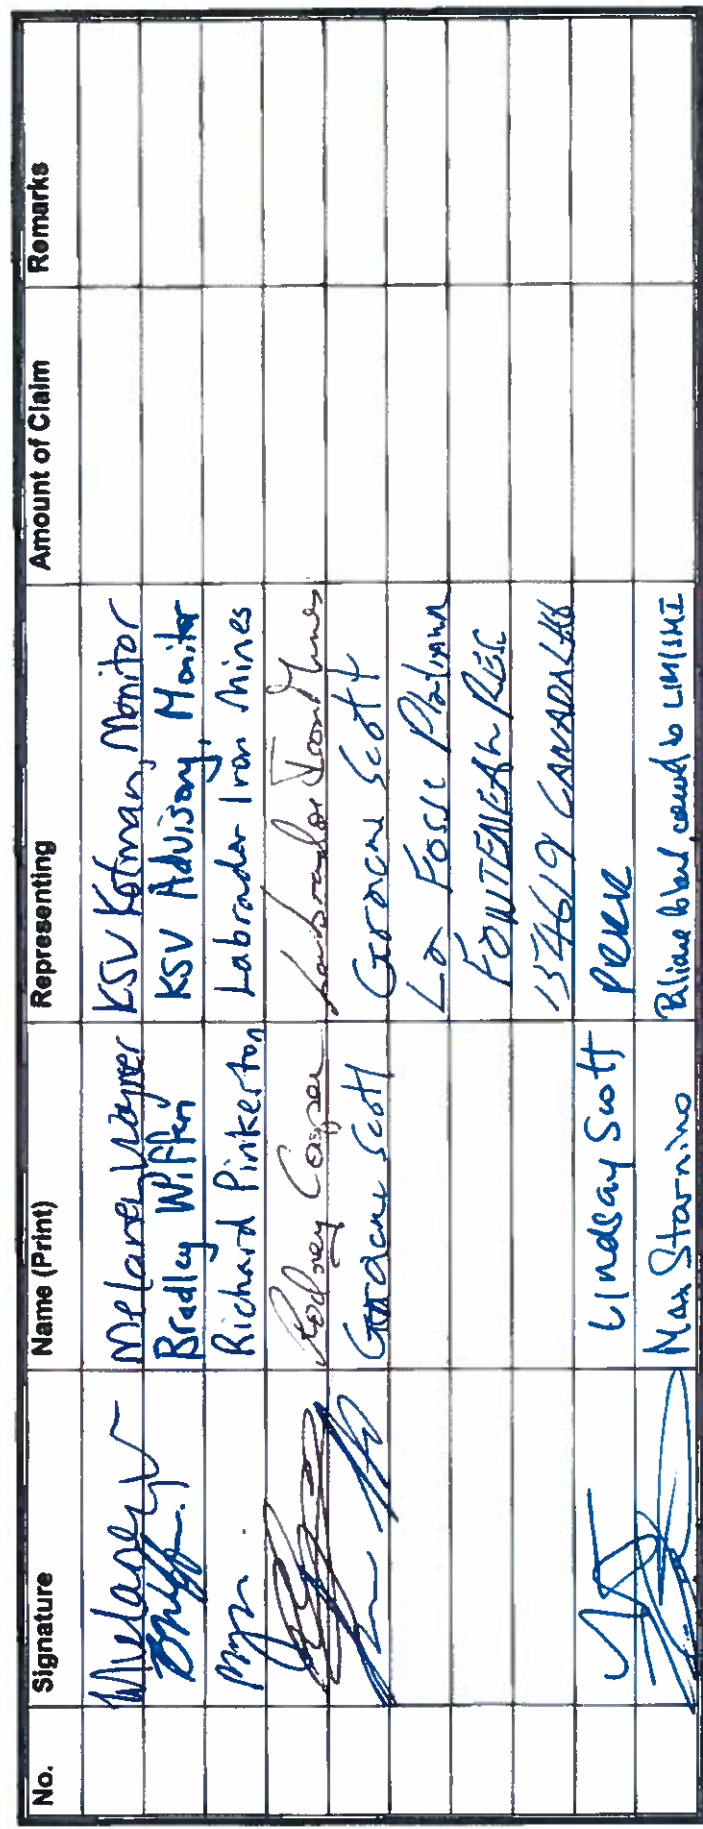 No. Signature Name (Print) Representing Amount of Claim Remarks
Melanie Wagner KSV Kofman, Monitor
Bradley Wiffen KSV Advisory, Monitor
Richard Pinkerton Labrador Iron Mines
Rodney Cooper Labrador Iron Mines
Gordane Scott Gordane Scott
La Fosse Platinum
FONTENEAU RESC
154619 CANADA Ltd
Lindsay Scott PRRR
Max Starnino Paliare Roland counsel to LIM/SMI